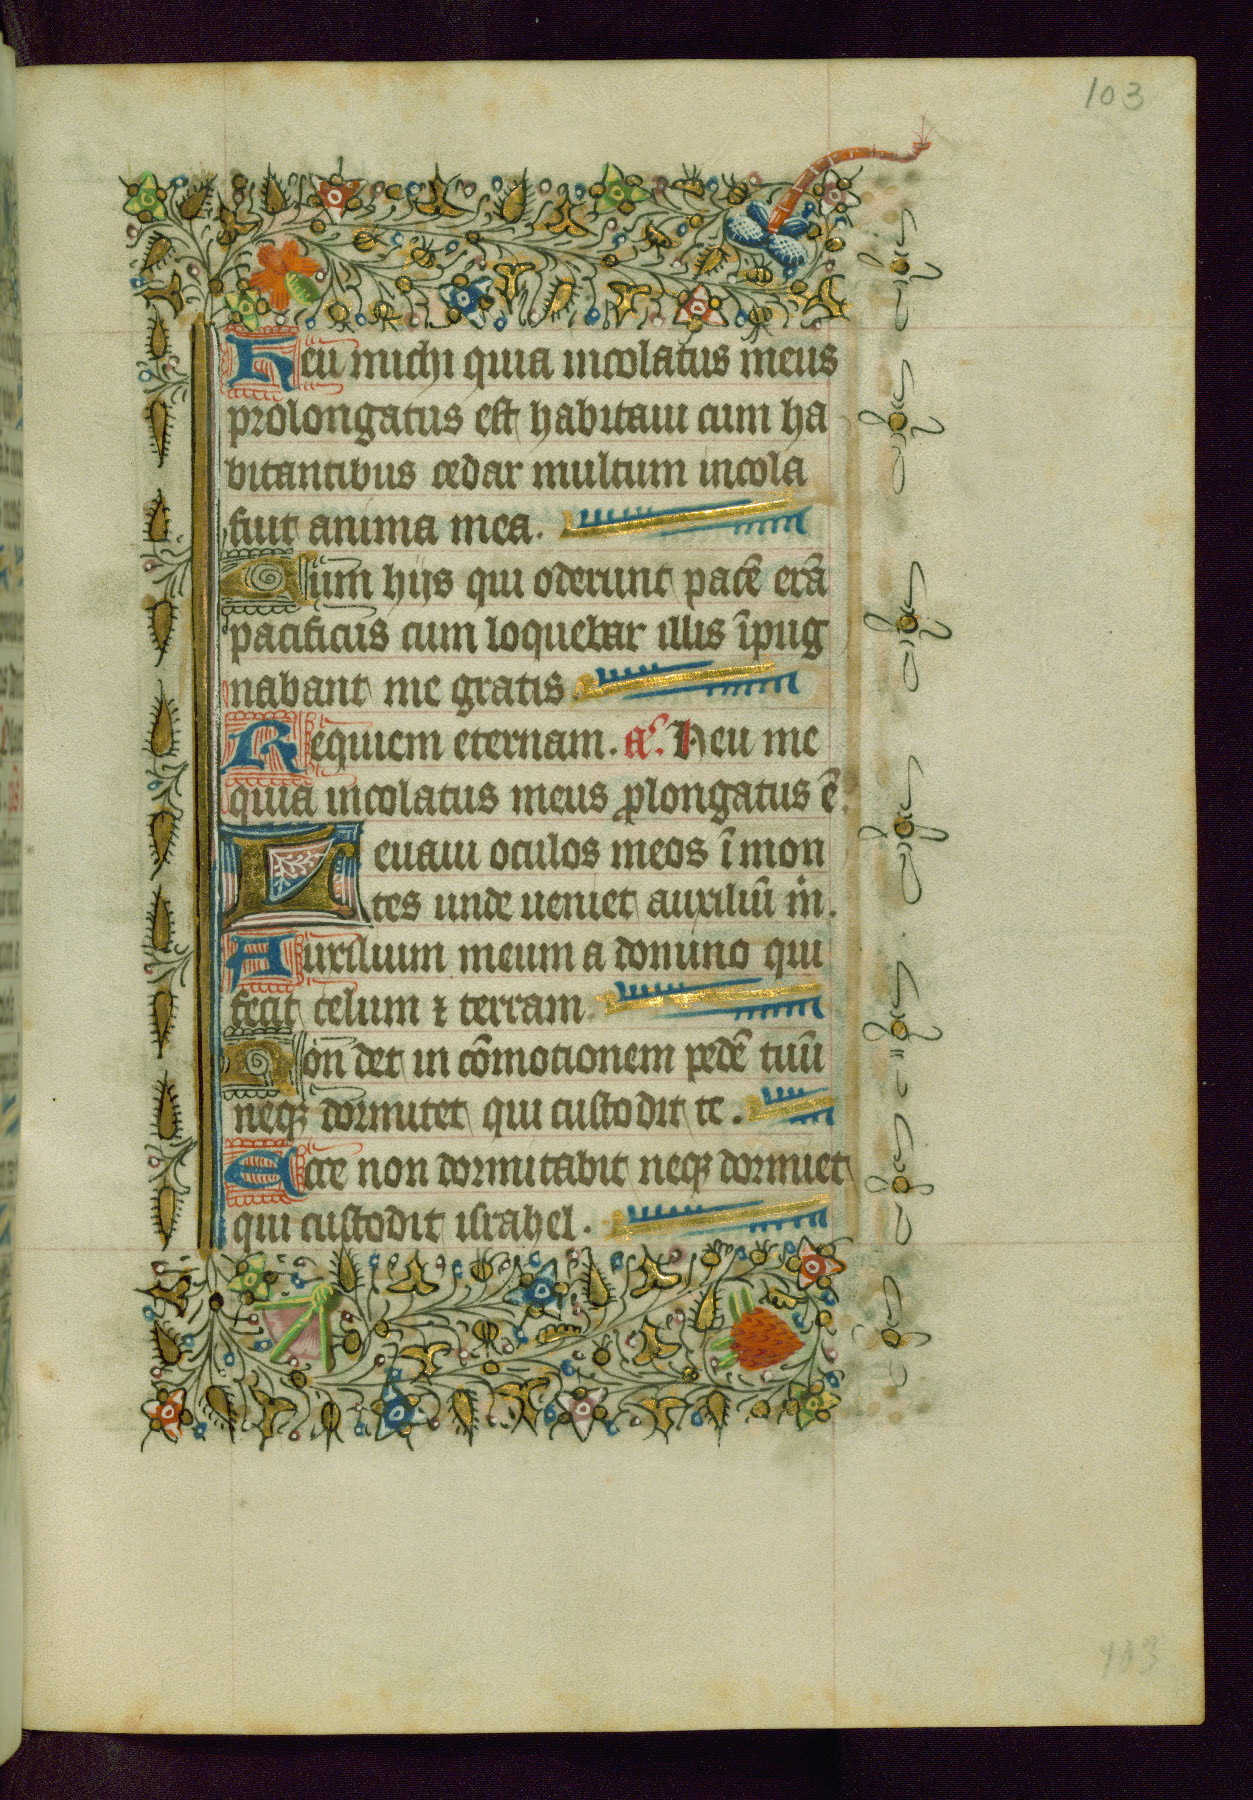 103
Heu michi quia incolatus meus
prolongatus est habitaui cum ha
bitantibus cedar multum incola
fuit anima mea.
Cum hijs qui oderunt pacē erā
pacificus cum loquebar illis īpug
nabant me gratis.
Requiem eternam. aͨ. Heu me
quia incolatus meus ꝓlongatus ē.
Leuaui oculos meos ī mon
tes unde ueniet auxiliū m̄.
Auxilium meum a domino qui
fecit celum ⁊ terram
Non det in cōmotionem pedē tuū
neqꝫ dormitet qui custodit te.
Ecce non dormitabit neqꝫ dormiet
qui custodit israhel.
103